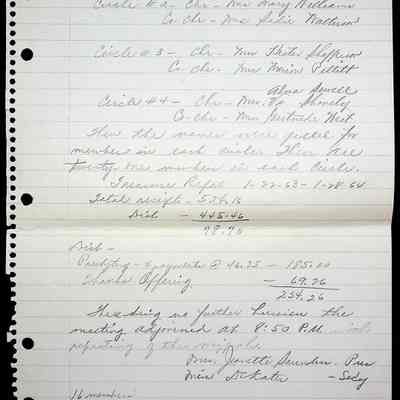 Circle #2 - Chr - Mrs Mary Williams
Co Chr - Mrs Sadie Watterson
Circle #3 - Chr - Mrs Sheffersons
Co-Chr. - Mrs Marion Pettitt
Alva Sewell
Circle #4 - Chr - Mrs.
Co-Chr - Mrs Gertrude West
Then the names were pulled for
members in each circle. There are
twenty one members in each Circle.
Treasurer Report 1-22-63 - 1-28-64
Total receipts - 524.16
Disb - 445.46
78.70
Disb -
Presbytery - 4 payments @ 46.25 - 185.00
Thanks Offering - 69.26
254.26
There being no further business the
meeting adjourned at 8:50 P.M. with
repeating of the
Mrs. Janette Saunders - Pres
- Secy
16 members